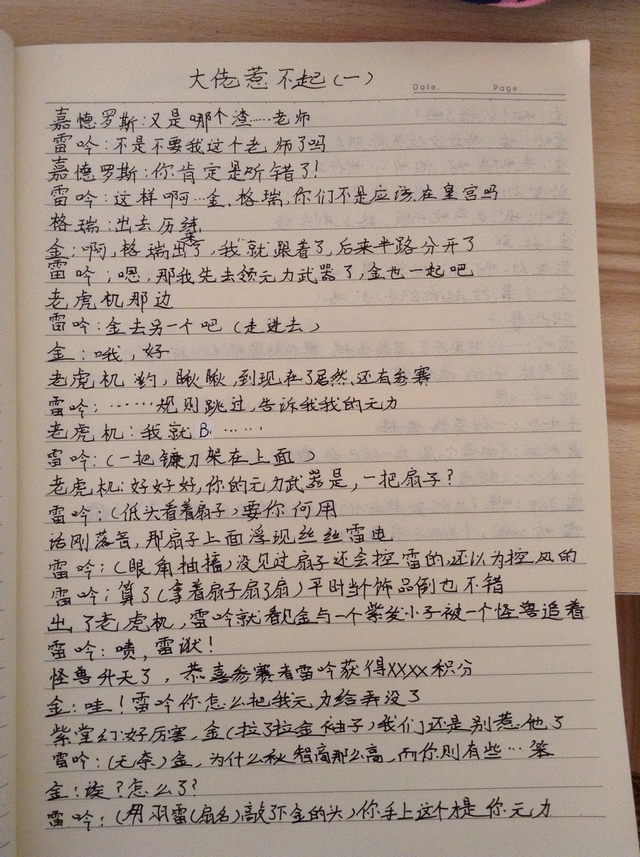 大佬惹不起(一)
Date.
Page.
嘉德罗斯:又是哪个渣……老师
雷吟:不是不要我这个老师了吗
嘉德罗斯:你肯定是听错了!
雷吟:这样啊…金,格瑞,你们不是应该在皇宫吗
格瑞:出去历练
金:啊,格瑞出来了,我就跟着了,后来半路分开了
雷吟:嗯,那我先去领元力武器了,金也一起吧
老虎机那边
雷吟:金去另一个吧(走进去)
金:哦,好
老虎机:哟,瞅瞅,到现在了居然还有参赛
雷吟:……规则跳过,告诉我我的元力
老虎机:我就B……
雷吟:(一把镰刀架在上面)
老虎机:好好好,你的元力武器是,一把扇子?
雷吟:(低头看着扇子)要你何用
话刚落音,那扇子上面浮现丝丝雷电
雷吟:(眼角抽搐)没见过扇子还会控雷的,还以为控风的
雷吟:算了(拿着扇子扇了扇)平时当个饰品倒也不错
出了老虎机,雷吟就看见金与一个紫发小子被一个怪兽追着
雷吟:啧,雷狱!
怪兽升天了,恭喜参赛者雷吟获得XXXX积分
金:哇!雷吟你怎么把我元力给弄没了
紫堂幻:好厉害,金(拉了拉金袖子)我们还是别惹他了
雷吟:(无奈)金,为什么秋智商那么高,而你则有些…笨
金:诶?怎么了?
雷吟:(用羽雷(扇名)敲了下金的头)你手上这个才是你元力